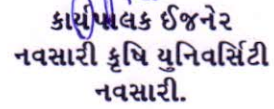 કાર્યપાલક ઈજનેર
નવસારી કૃષિ યુનિવર્સિટી
નવસારી.